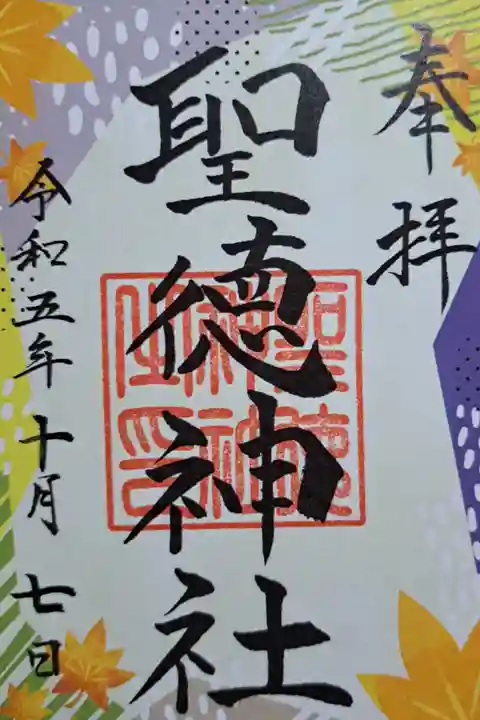 奉拝
聖徳神社
令和五年十月七日